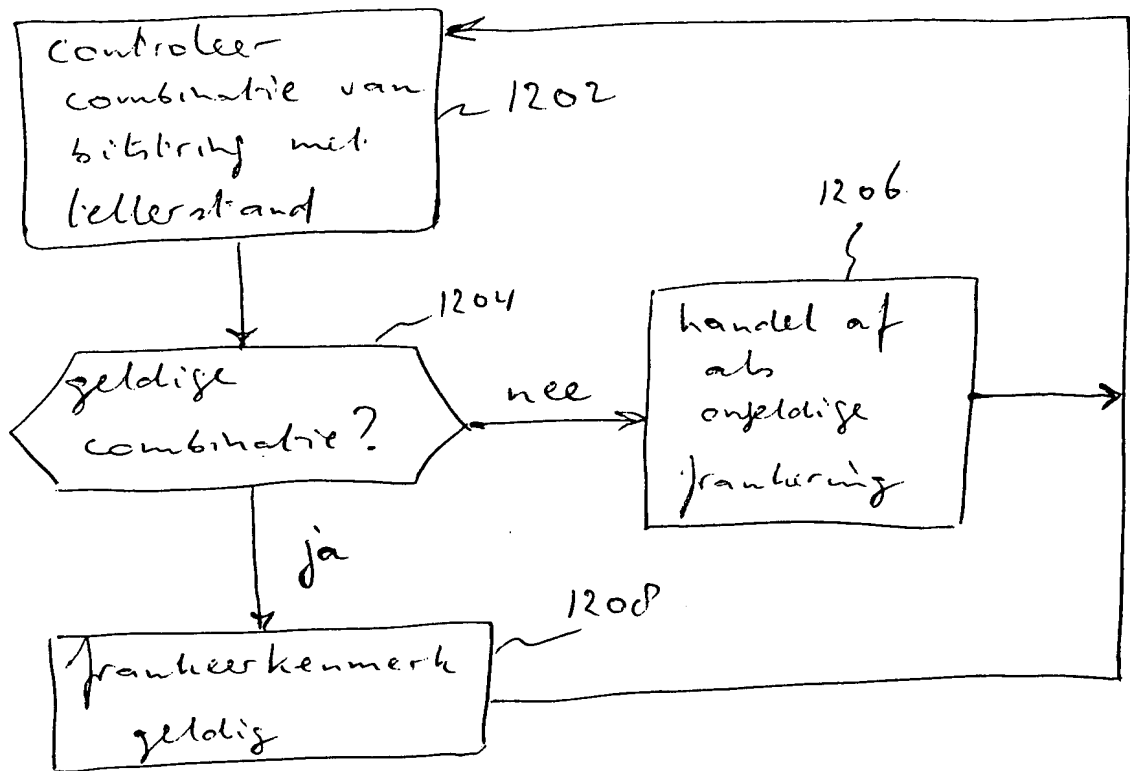 controleer
combinatie van
bitstring met
tellerstand
1202
1204
geldige
combinatie?
nee
1206
handel af
als
ongeldige
frankering
ja
1208
frankeerkenmerk
geldig